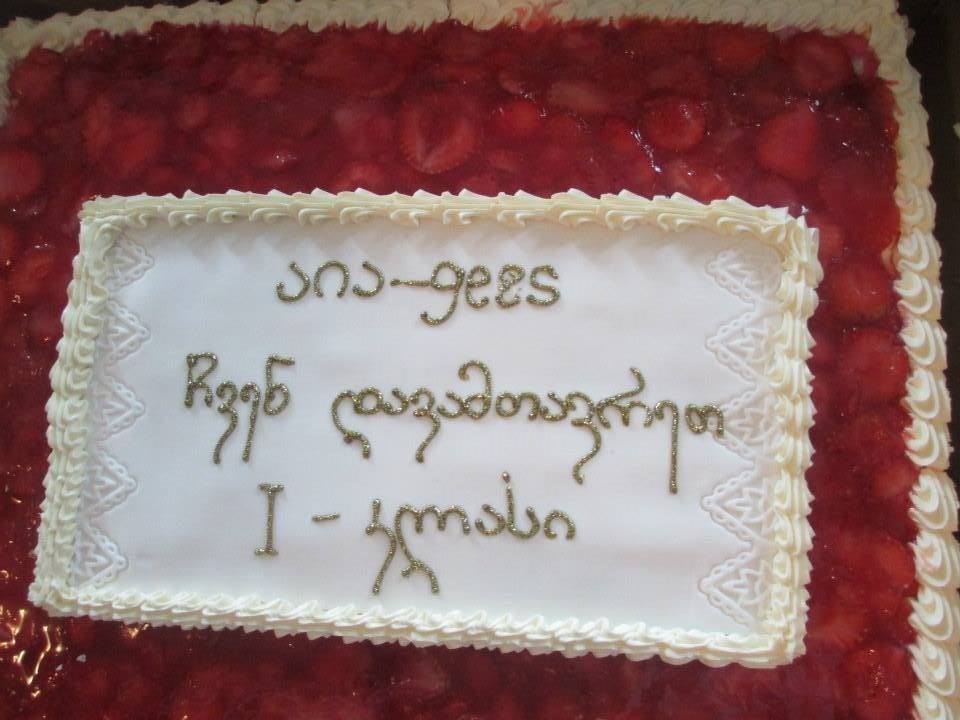 აია-gees
ჩვენ დავამთავრეთ
I - კლასი